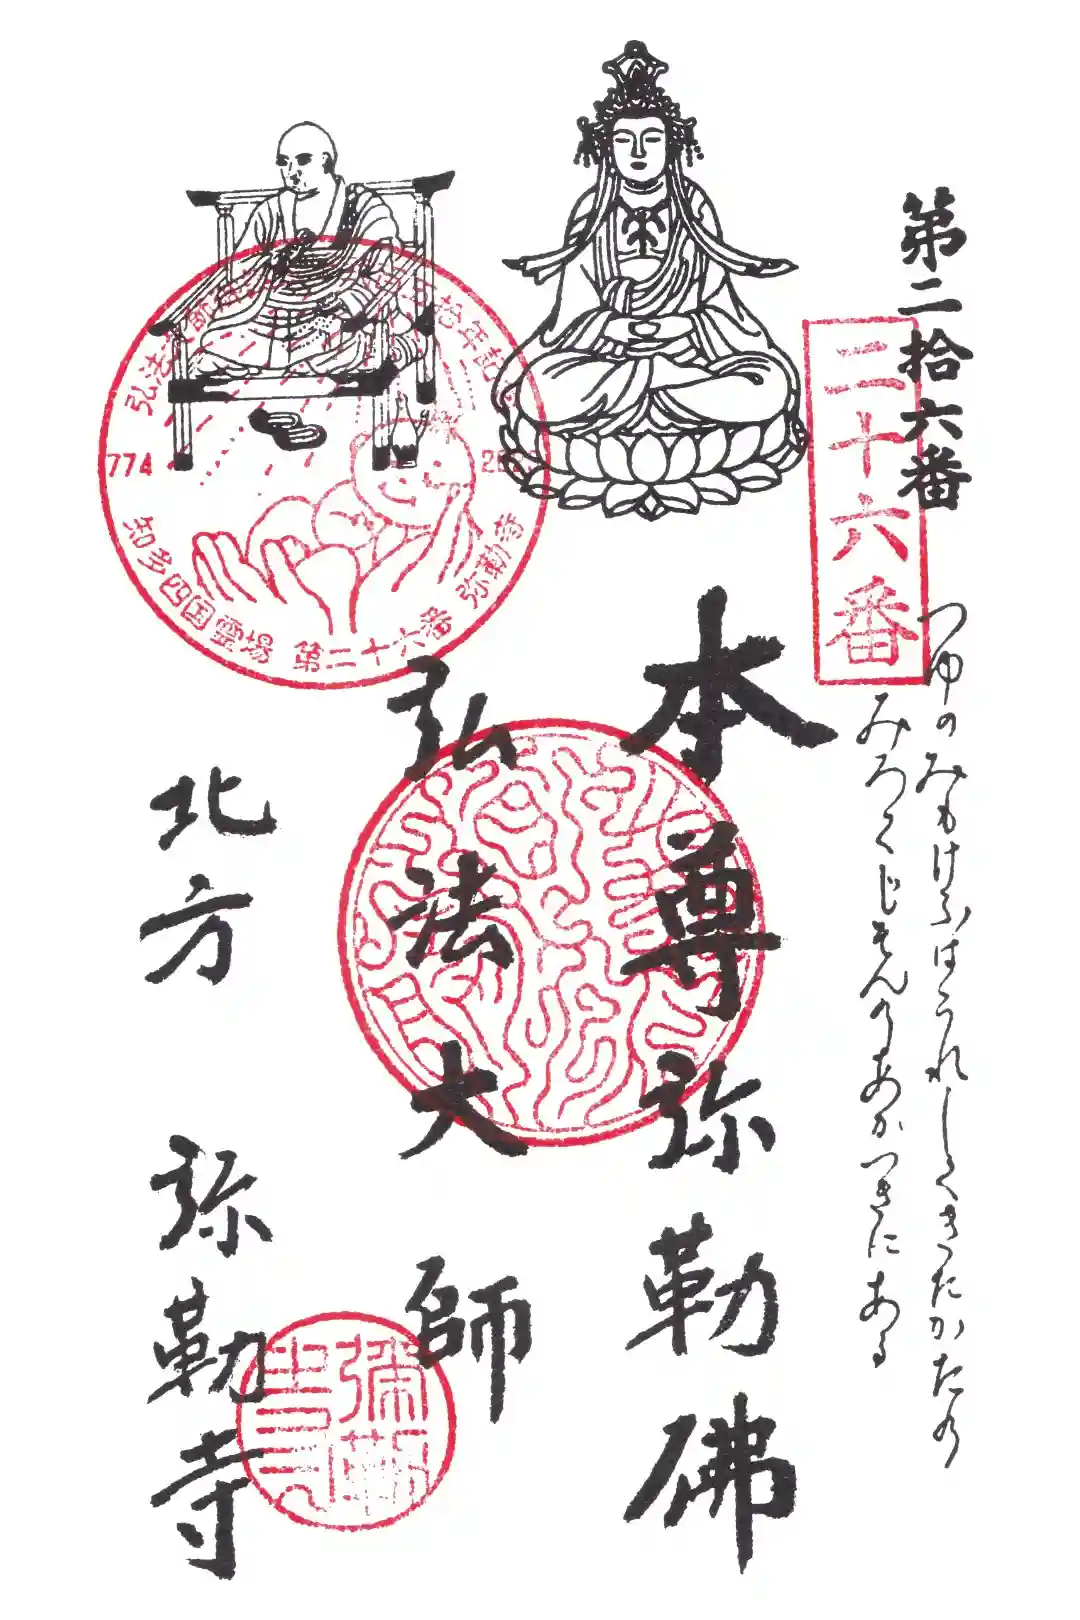 第二拾六番
二十六番
つゆのみもけふはうれしくきたかたの
みろくじそんのあかつきにあふ
本尊弥勒佛
弘法大師
北方 弥勒寺
弘法
年起
774
知多四国霊場 第二十六番 弥勒寺
弥勒